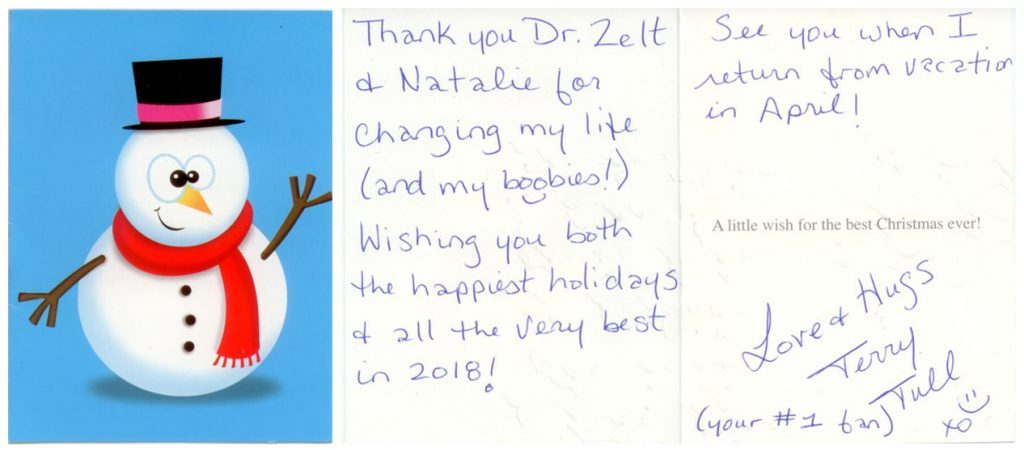 Thank you Dr. Zelt
& Natalie for
changing my life
(and my boobies!)
Wishing you both
the happiest holidays
& all the very best
in 2018!
See you when I
return from vacation
in April!
A little wish for the best Christmas ever!
Love & Hugs
Terry
Tull
(your #1 fan)
xo